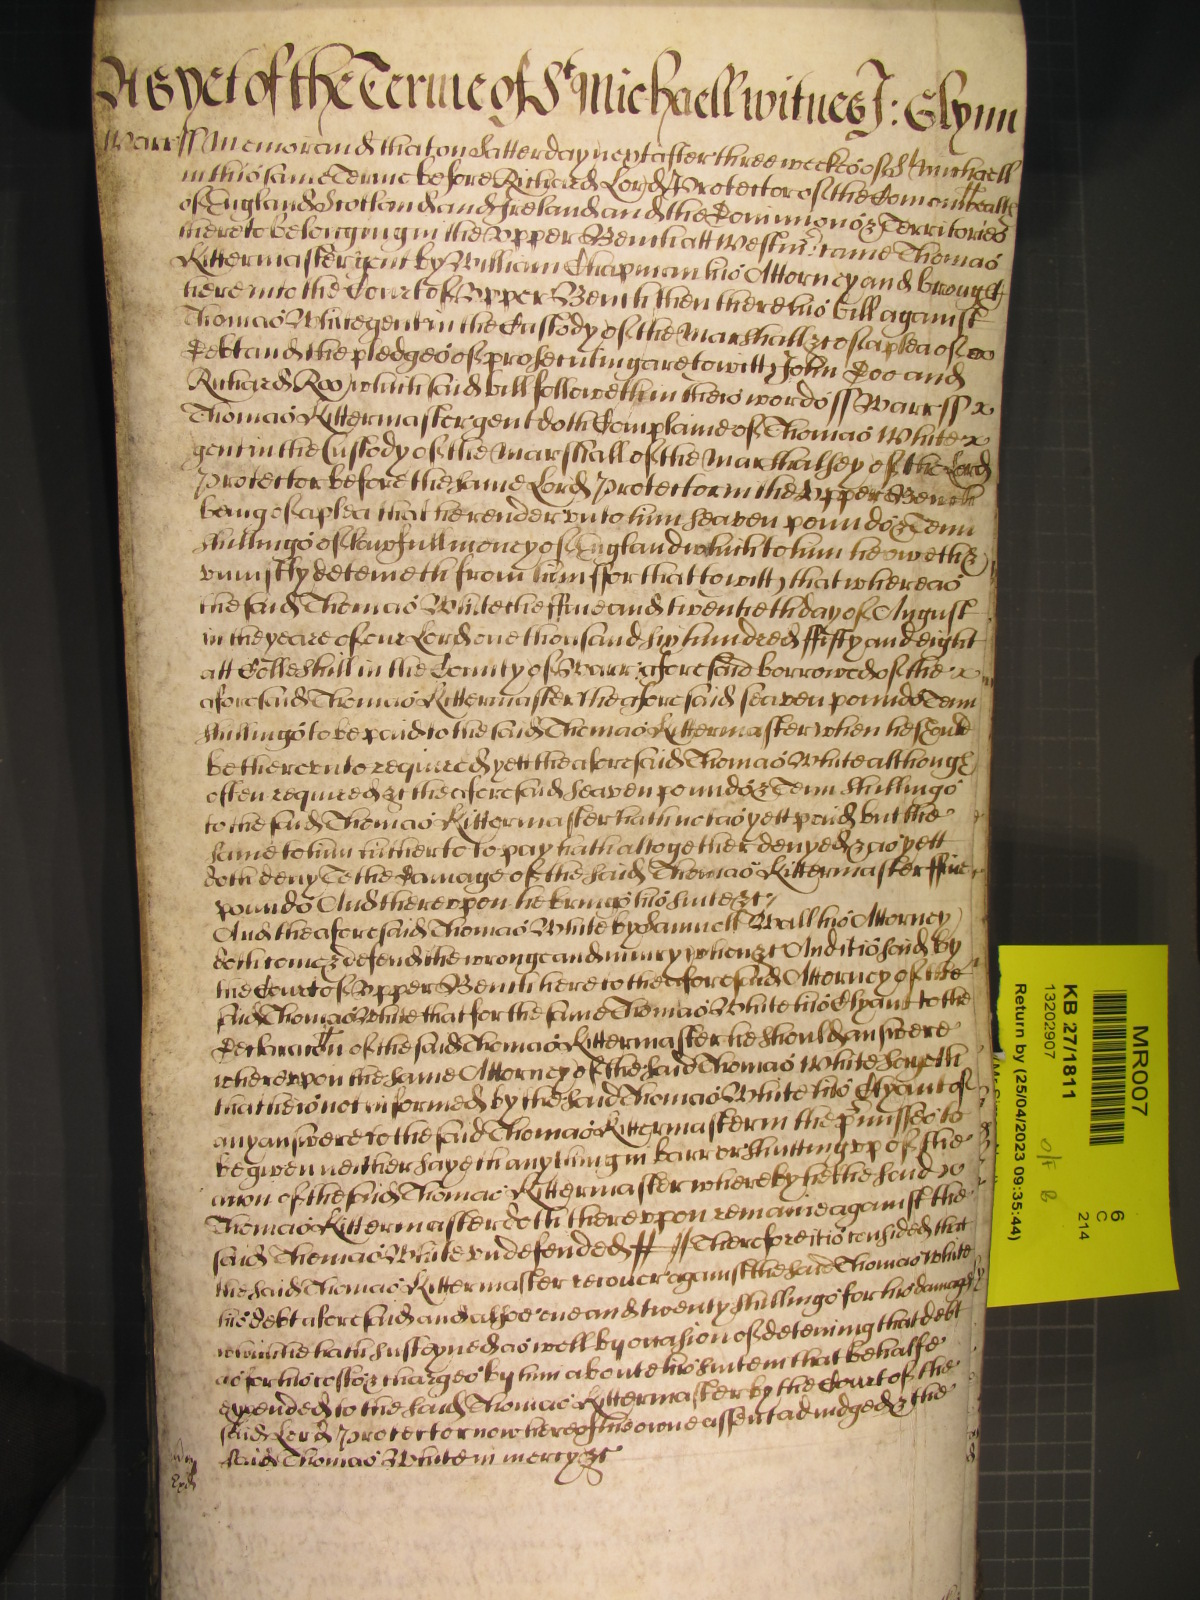 As yet of the Terme of St Michaell witnes J: Glynn
Warr ss Memorand that on Satterday next after three weekes of St Michaell
in this same Terme before Richard Lord Protector of the Comonwealth
of England Scotland and Ireland and the Dominions & Territories
thereto belonging in the Upper Bench att Westmr came Thomas
Kittermaster gent by William Chapman his Attorney and brought
here into the Court of Upper Bench then there his bill against
Thomas White gent in the Custody of the Marshall &c of a plea of
Debt and the pledges of prosecuting are to witt John Doo and
Richard Roo which said bill followeth in theis words ss Warr ss
Thomas Kittermaster gent doth Complaine of Thomas White
gent in the Custody of the Marshall of the Marshalsey of the Lord
Protector before the same Lord Protector in the Upper Bench
being of a plea that he render unto him seaven pounds & Tenn
shillings of lawfull money of England which to him he oweth &
uniustly deteineth from him ffor that to witt that whereas
the said Thomas White the ffive and twentieth day of August
in the yeare of our Lord one thousand six hundred ffifty and eight
att Colleshill in the County of Warr aforesaid borrowed of the
aforesaid Thomas Kittermaster the aforesaid seaven pounds Tenn
shillings to be paid to the said Thomas Kittermaster when he should
be thereunto required yett the aforesaid Thomas White although
often required &c the aforesaid seaven pounds & Tenn shillings
to the said Thomas Kittermaster hath not as yett paid but the
same to him hitherto to pay hath altogether denyed & as yett
doth deny To the Damage of the said Thomas Kittermaster ffive
pounds And thereupon he brings his suite &c
And the aforesaid Thomas White by Samuell Wall his Attorney
doth come & defend the wronge and iniury when &c And it is said by
the Court of Upper Bench here to the aforesaid Attorney of the
said Thomas White that for the same Thomas White his Clyant to the
Declaration of the said Thomas Kittermaster he should answere
whereupon the same Attorney of the said Thomas White sayeth
that he is not informed by the said Thomas White his Clyant of
any answere to the said Thomas Kittermaster in the p'misses to
be given neither sayeth any thing in barr or shutting up of the
accon of the said Thomas Kittermaster whereby he the said
Thomas Kittermaster doth thereupon remaine against the
said Thomas White undefended Therefore it is considered that
the said Thomas Kittermaster recover against the said Thomas White
his debt aforesaid and alsoe one and twenty shillings for his damages
which he hath susteyned as well by occasion of deteining that debt
as for his costs & charges by him aboute his suite in that behalfe
expended to the said Thomas Kittermaster by the Court of the
said Lord Protector now here of his owne assent adiudged & the
said Thomas White in mercy &c
MR007
KB 27/1811
13202907
Return by (25/04/2023 09:35:44)
6
C
214